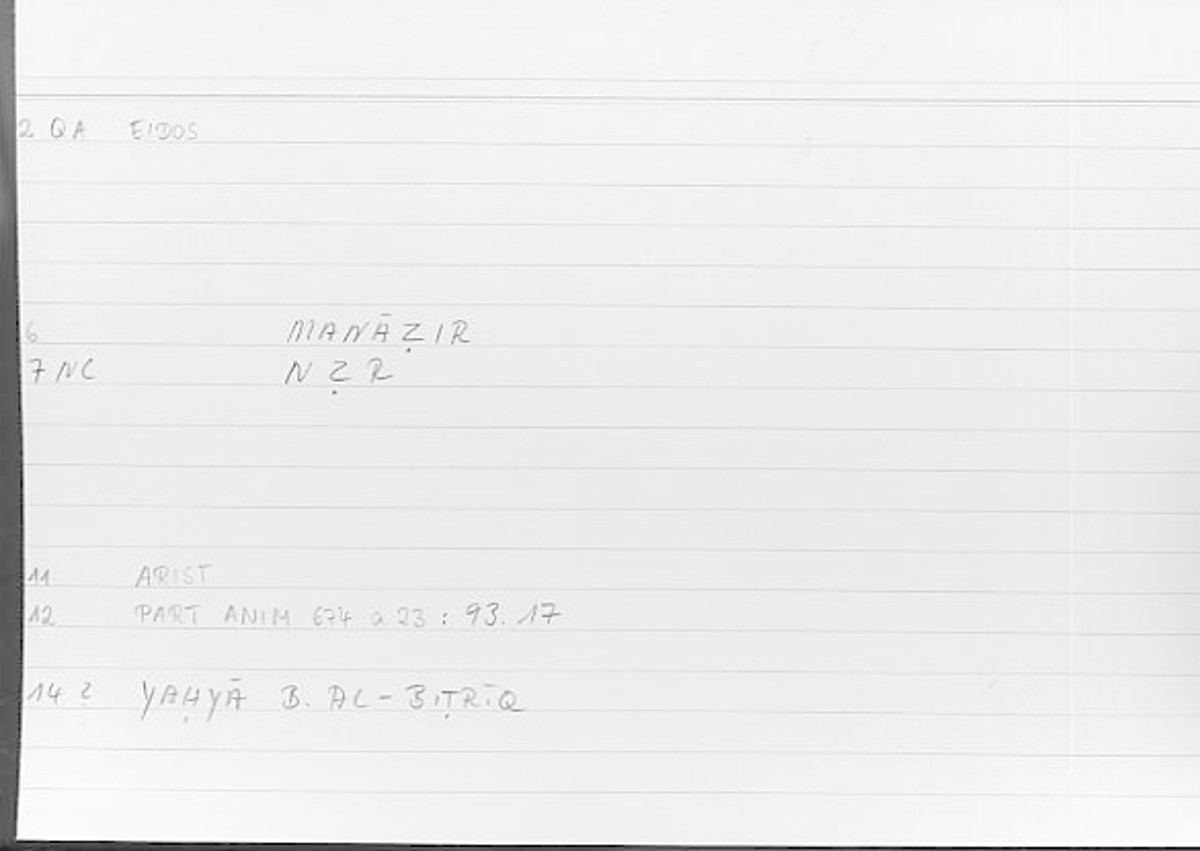 2 QA EIDOS
6 MANĀẒIR
7 NC NẒR
11 ARIST
12 PART ANIM 674 a 23 : 93.17
14 ? YAḤYĀ B. AL-BIṬRĪQ